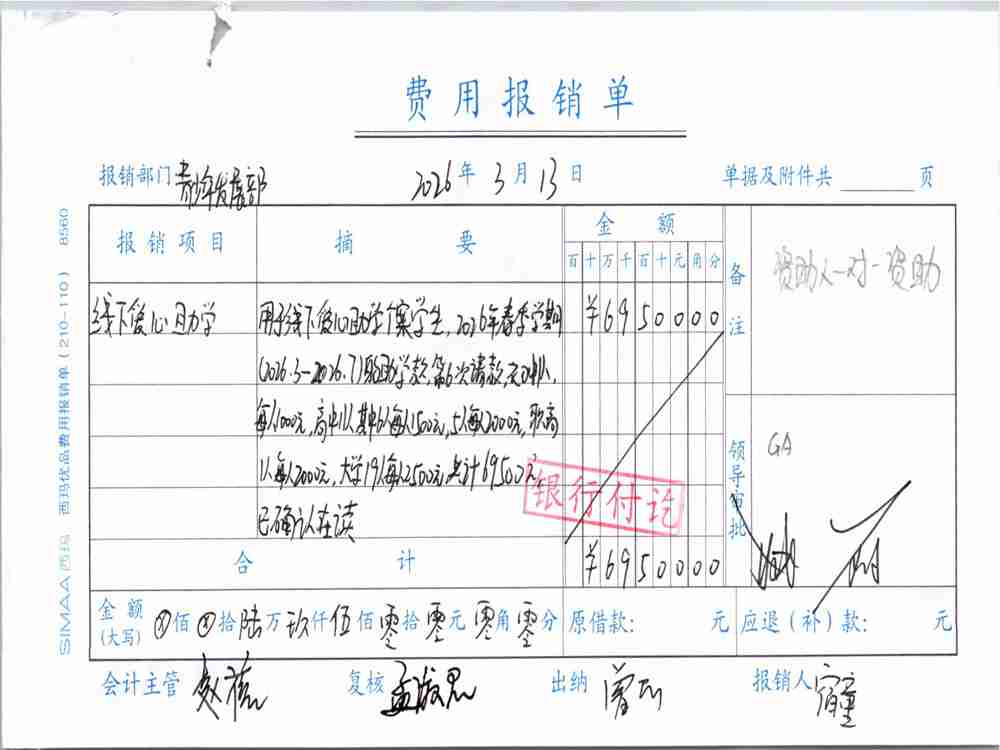 费用报销单
报销部门 青少年发展部 2026年3月13日 单据及附件共 页
报销项目 摘要 金额 备注 资助人一对一资助
百十万千百十元角分
线下爱心助学 用于线下爱心助学个案学生,2026年春季学期 ¥6950000
(2026.3-2026.7)助学款,第6次请款,
每人1000元,高中11人其中6人每人1500元,5人每人2000元,职高
1人每人2000元,大学19人每人2500元,共计69500元
已确认在读
银行付讫
领导审批 GA
合计 ¥6950000
金额(大写) ⊗佰⊗拾陆万玖仟伍佰零拾零元零角零分 原借款: 元 应退(补)款: 元
会计主管 复核 出纳 报销人
SIMAA 西玛 西玛优品费用报销单(210-110) 8560